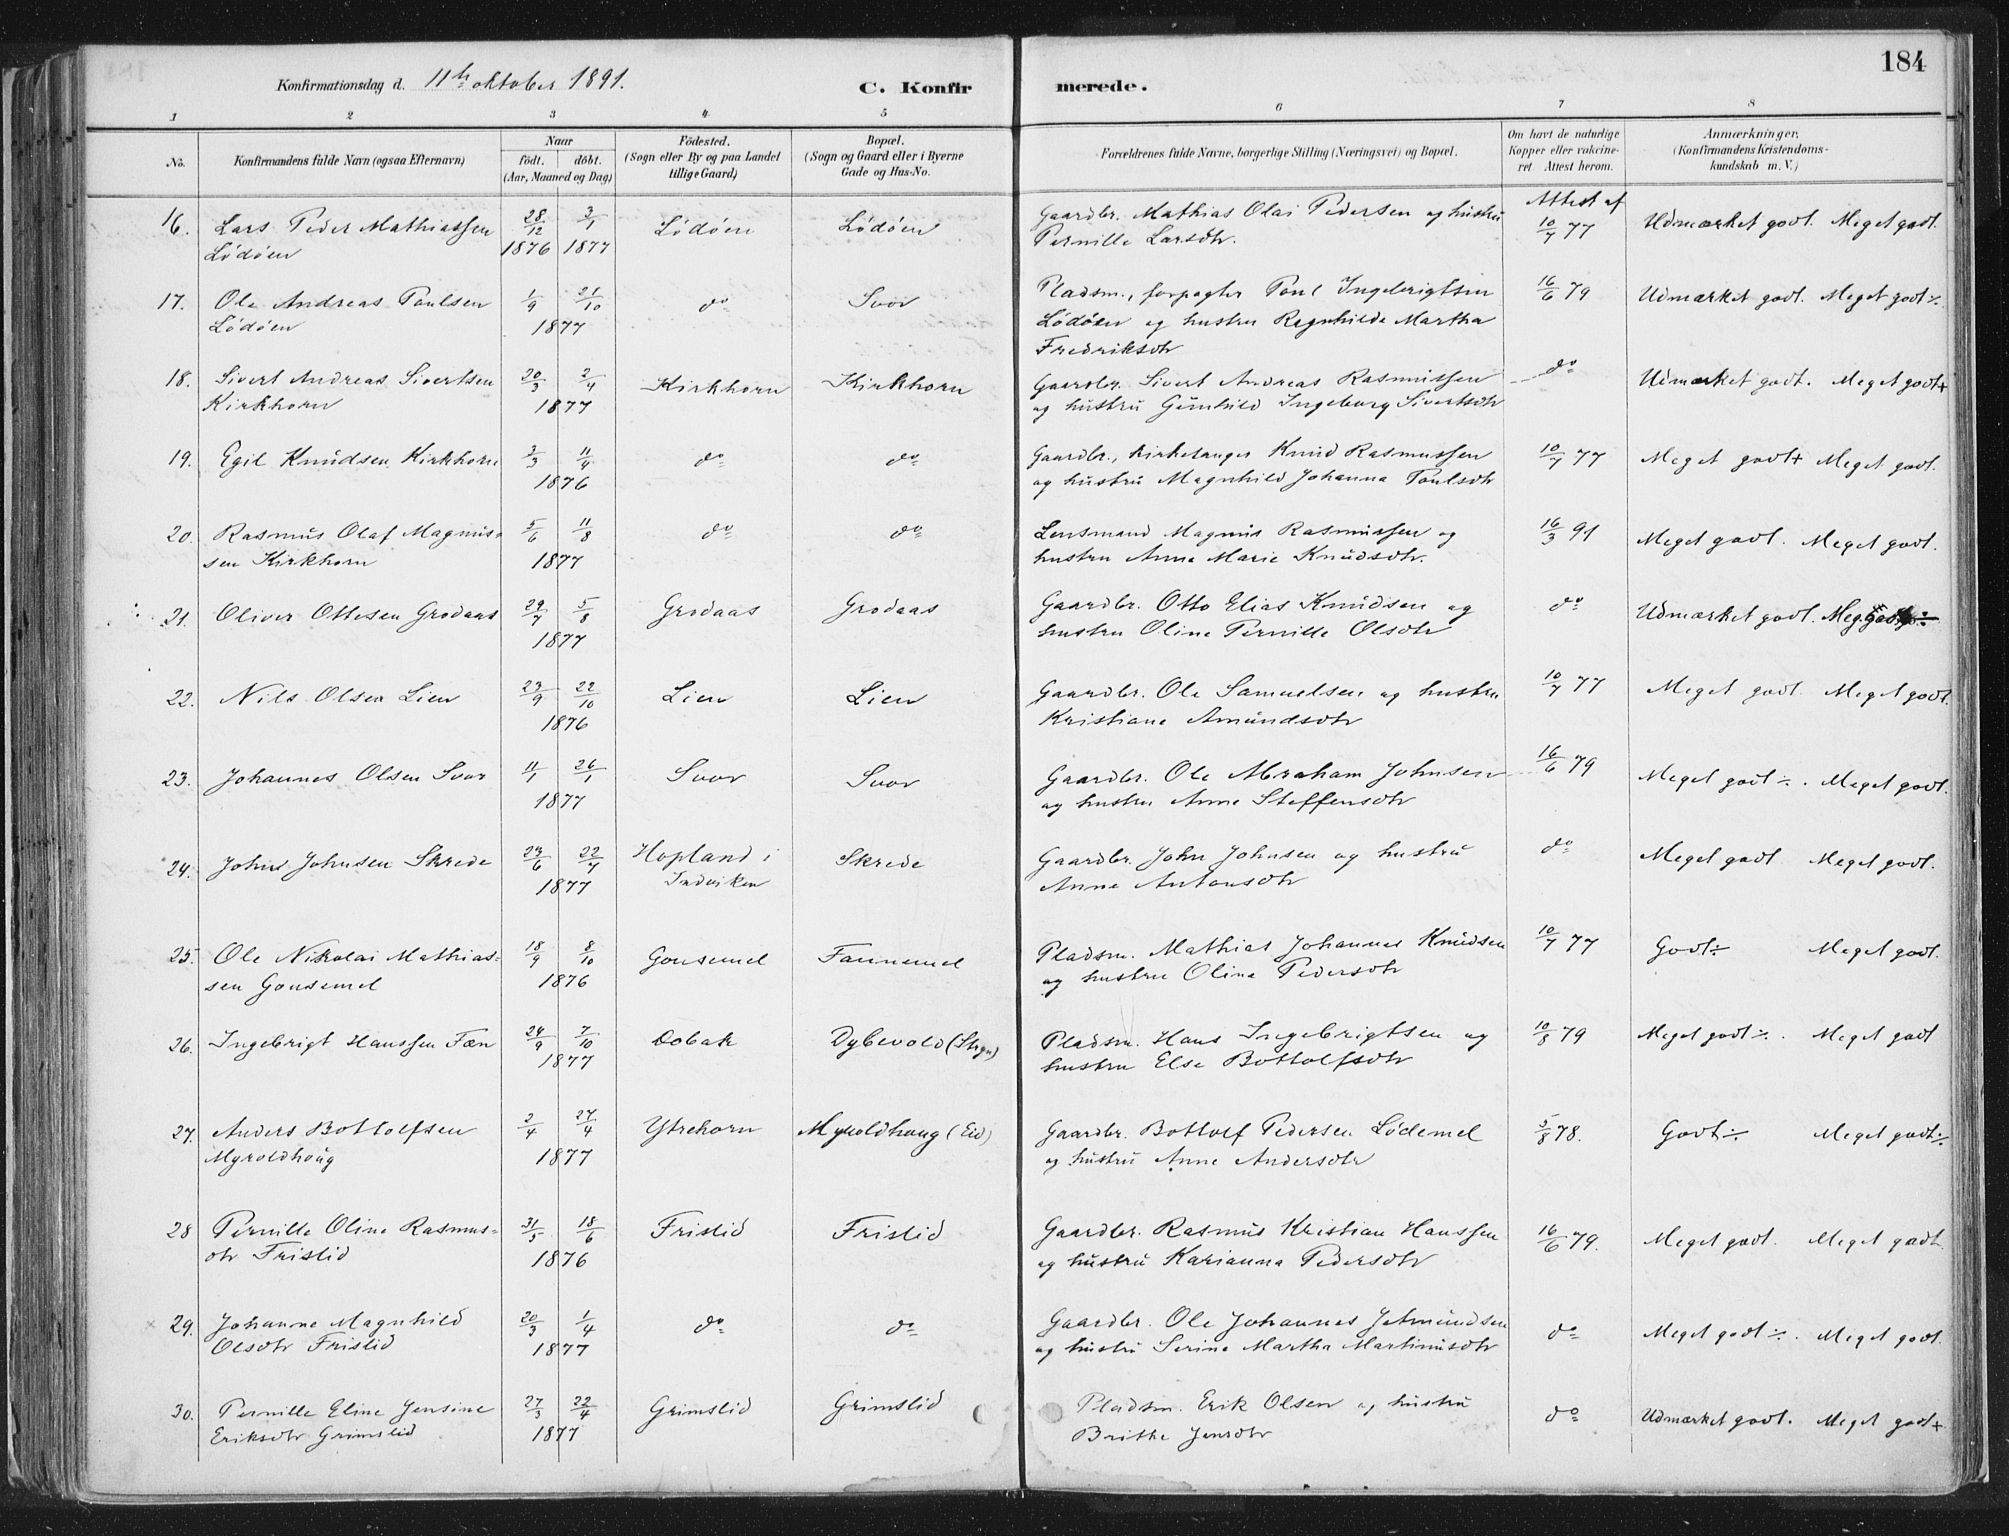 184
Konfirmationsdag d. 11te oktober 1891.
C. Konfirmerede.
1 2 3 4 5 6 7 8
No.
Konfirmandens fulde Navn (ogsaa Efternavn)
Naar
födt. döbt.
(Aar, Maaned og Dag)
Födested.
(Sogn eller By og paa Landet
tillige Gaard)
Bopæl.
(Sogn og Gaard eller i Byerne
Gade og Hus-No.
Forældrenes fulde Navne, borgerlige Stilling (Næringsvei) og Bopæl.
Om havt de naturlige
Kopper eller vakcine-
ret. Attest herom.
Anmærkninger.
(Konfirmandens Kristendoms-
kundskab m. V.)
16. Lars Peder Mathiassen 28/12 3/1 Lödöen Lödöen Gaardbr. Mathias Olai Pedersen og hustru Attest af 10/7 77 Udmærket godt. Meget godt.
Lödöen 1876 1877 Pernille Larsdtr.
17. Ole Andreas Poulsen 1/9 21/10 do Svor Pladsm., forpagter Poul Ingebrigtsen 16/6 79 Udmærket godt. Meget godt ÷
Lödöen 1877 Lödöen og hustru Ragnhilde Martha
Fredriksdtr
18. Sivert Andreas Sivertsen 20/3 2/4 Kirkhorn Kirkhorn Gaardbr. Sivert Andreas Rasmussen do Udmærket godt. Meget godt+
Kirkhorn 1877 og hustru Gunhild Ingeborg Sivertsdtr
19. Egil Knudsen Kirkhorn 3/3 11/4 do do Gaardbr., kirkesanger Knud Rasmussen 10/7 77 Meget godt+ Meget godt.
1876 og hustru Magnhild Johanna Poulsdtr
20. Rasmus Olaf Magnus- 5/6 11/8 do do Lensmand Magnus Rasmussen og 16/3 91 Meget godt. Meget godt.
sen Kirkhorn 1877 hustru Anne Marie Knudsdtr.
21. Oliver Ottesen Grodaas 29/7 5/8 Grodaas Grodaas Gaardbr. Otto Elias Knudsen og do Udmærket godt. Meg. godt ÷
1877 hustru Oline Pernille Olsdtr
22. Nils Olsen Lien 23/9 22/10 Lien Lien Gaardbr. Ole Samuelsen og hustru 10/7 77 Meget godt. Meget godt.
1876 Kristiane Amundsdtr
23. Johannes Olsen Svor 11/1 26/1 Svor Svor Gaardbr. Ole Abraham Johnsen 16/6 79 Meget godt ÷. Meget godt.
1877 og hustru Anne Steffensdtr
24. John Johnsen Skrede 23/6 22/7 Hopland i Skrede Gaardbr. John Johnsen og hustru do Meget godt Meget godt.
1877 Indviken Anne Antonsdtr
25. Ole Nikolai Mathias- 18/9 8/10 Gousemel Fannemel Pladsm. Mathias Johannes Knudsen 10/7 77 Godt ÷ Meget godt.
sen Gousemel 1876 og hustru Oline Pedersdtr
26. Ingebrigt Hanssen Fæn 24/9 7/10 Dobak Dybevold (Stryn) Pladsm. Hans Ingebrigtsen og 10/8 79 Meget godt ÷. Meget godt
1877 hustru Else Bottolfsdtr
27. Anders Bottolfsen 2/4 27/4 Ytrehorn Myroldhoug (Eid) Gaardbr. Bottolf Pedersen Lödemel 5/8 78. Godt ÷ Meget godt ÷
Myroldhoug 1877 og hustru Anne Andersdtr
28 Pernille Oline Rasmus- 31/5 18/6 Frislid Frislid Gaardbr. Rasmus Kristian Hanssen 16/6 79. Meget godt. Meget godt
dtr Frislid 1876 og hustru Karianna Pedersdtr
29. Johanne Magnhild 20/3 1/4 do do Gaardbr. Ole Johannes Jetmundsen do Meget godt ÷. Meget godt.
Olsdtr Frislid 1877 og hustru Serine Martha Martinusdtr
30. Pernille Eline Jensine 27/3 22/4 Grimslid Grimslid Pladsm. Erik Olsen og hustru do Udmærket godt. Meget godt+
Eriksdtr Grimslid 1877 Brithe Jensdtr